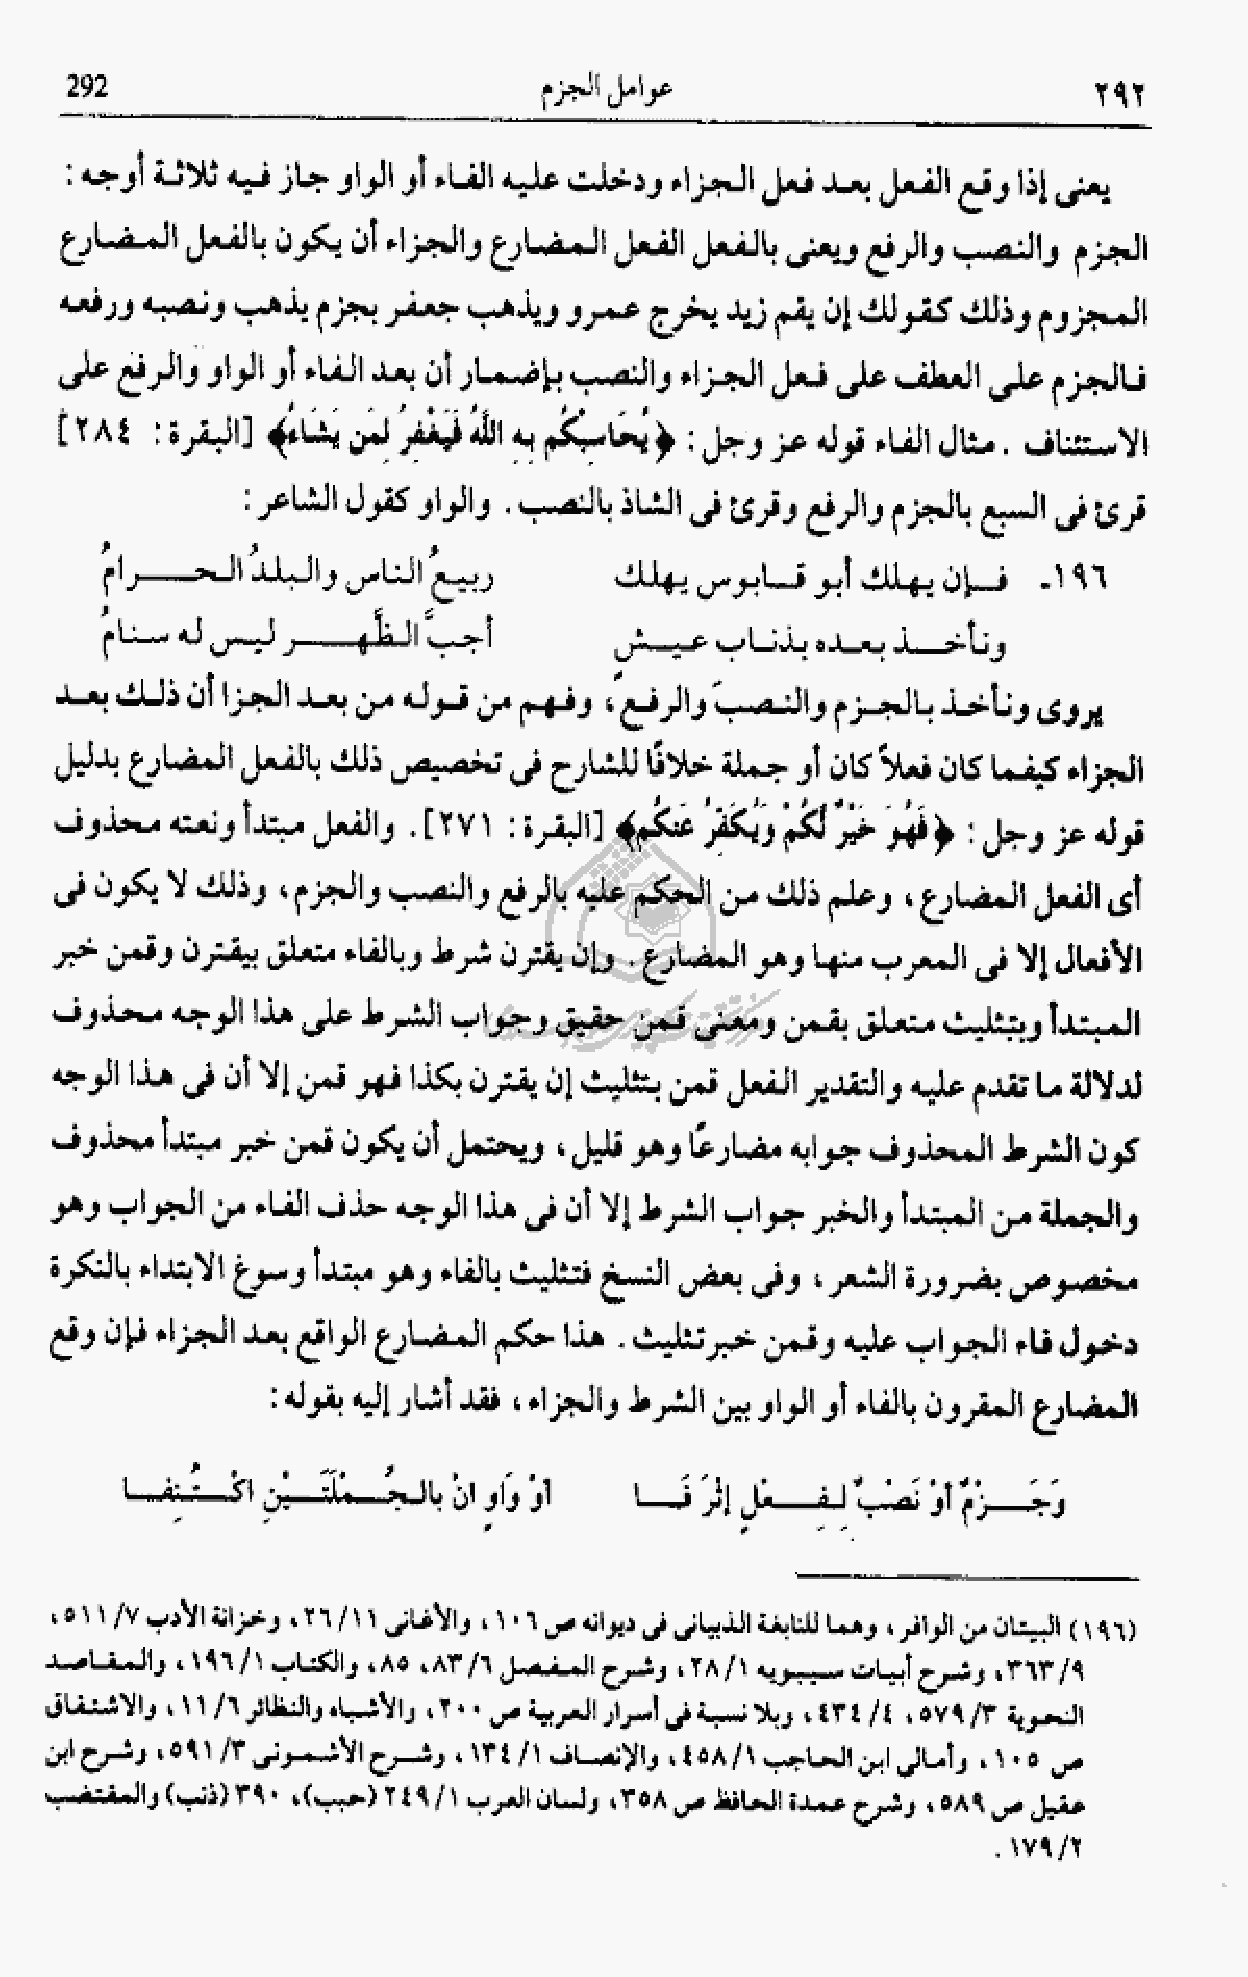 ٢٩٢ عوامل الجزم 292
يعنى إذا وقع الفعل بعد فعل الجزاء ودخلت عليه الفاء أو الواو جاز فيه ثلاثة أوجه :
الجزم والنصب والرفع ويعنى بالفعل الفعل المضارع والجزاء أن يكون بالفعل المضارع
المجزوم وذلك كقولك إن يقم زيد يخرج عمرو ويذهب جعفر بجزم يذهب ونصبه ورفعه
فالجزم على العطف على فعل الجزاء والنصب بإضمار أن بعد الفاء أو الواو والرفع على
الاستئناف . مثال الفاء قوله عز وجل : ﴿يُحَاسِبْكُم بِهِ اللَّهُ فَيَغْفِرُ لِمَن يَشَاءُ﴾ [البقرة : ٢٨٤]
قرئ فى السبع بالجزم والرفع وقرئ فى الشاذ بالنصب . والواو كقول الشاعر :
١٩٦ـ فإن يهلك أبو قابوس يهلك ربيعُ الناس والبلدُ الحرامُ
ونأخذ بعده بذناب عيشٍ أجبَّ الظَّهر ليس له سنامُ
يروى ونأخذ بالجزم والنصب والرفع ، وفهم من قوله من بعد الجزا أن ذلك بعد
الجزاء كيفما كان فعلاً كان أو جملة خلافًا للشارح فى تخصيص ذلك بالفعل المضارع بدليل
قوله عز وجل : ﴿فَهُوَ خَيْرٌ لَّكُمْ وَيُكَفِّرُ عَنكُم﴾ [البقرة : ٢٧١]. والفعل مبتدأ ونعته محذوف
أى الفعل المضارع ، وعلم ذلك من الحكم عليه بالرفع والنصب والجزم ، وذلك لا يكون فى
الأفعال إلا فى المعرب منها وهو المضارع . وإن يقترن شرط وبالفاء متعلق بيقترن وقمن خبر
المبتدأ وبتثليث متعلق بقمن ومعنى قمن حقيق وجواب الشرط على هذا الوجه محذوف
لدلالة ما تقدم عليه والتقدير الفعل قمن بتثليث إن يقترن بكذا فهو قمن إلا أن فى هذا الوجه
كون الشرط المحذوف جوابه مضارعًا وهو قليل ، ويحتمل أن يكون قمن خبر مبتدأ محذوف
والجملة من المبتدأ والخبر جواب الشرط إلا أن فى هذا الوجه حذف الفاء من الجواب وهو
مخصوص بضرورة الشعر ، وفى بعض النسخ فتثليث بالفاء وهو مبتدأ وسوغ الابتداء بالنكرة
دخول فاء الجواب عليه وقمن خبرتثليث . هذا حكم المضارع الواقع بعد الجزاء فإن وقع
المضارع المقرون بالفاء أو الواو بين الشرط والجزاء ، فقد أشار إليه بقوله :
وَجَزْمٌ أوْ نَصْبٌ لِفِعْلٍ إثْرَ فَا أوْ وَاوٍ انْ بالجُمْلَتَيْنِ اكْتُنِفا
(١٩٦) البيتان من الوافر ، وهما للنابغة الذبيانى فى ديوانه ص ١٠٦ ، والأغانى ١١/ ٢٦ ، وخزانة الأدب ٧/ ٥١١ ،
٩/ ٣٦٣، وشرح أبيات سيبويه ١/ ٢٨ ، وشرح المفصل ٦/ ٨٣، ٨٥ ، والكتاب ١/ ١٩٦ ، والمقاصد
النحوية ٣/ ٥٧٩ ، ٤/ ٤٣٤ ، وبلا نسبة فى أسرار العربية ص ٢٠٠ ، والأشباه والنظائر ٦/ ١١ ، والاشتقاق
ص ١٠٥ ، وأمالى ابن الحاجب ١/ ٤٥٨ ، والإنصاف ١/ ١٣٤ ، وشرح الأشمونى ٣/ ٥٩١ ، وشرح ابن
عقيل ص ٥٨٩ ، وشرح عمدة الحافظ ص ٣٥٨ ، ولسان العرب ١/ ٢٤٩ (حبب) ، ٣٩٠ (ذنب) والمقتضب
٢/ ١٧٩ .